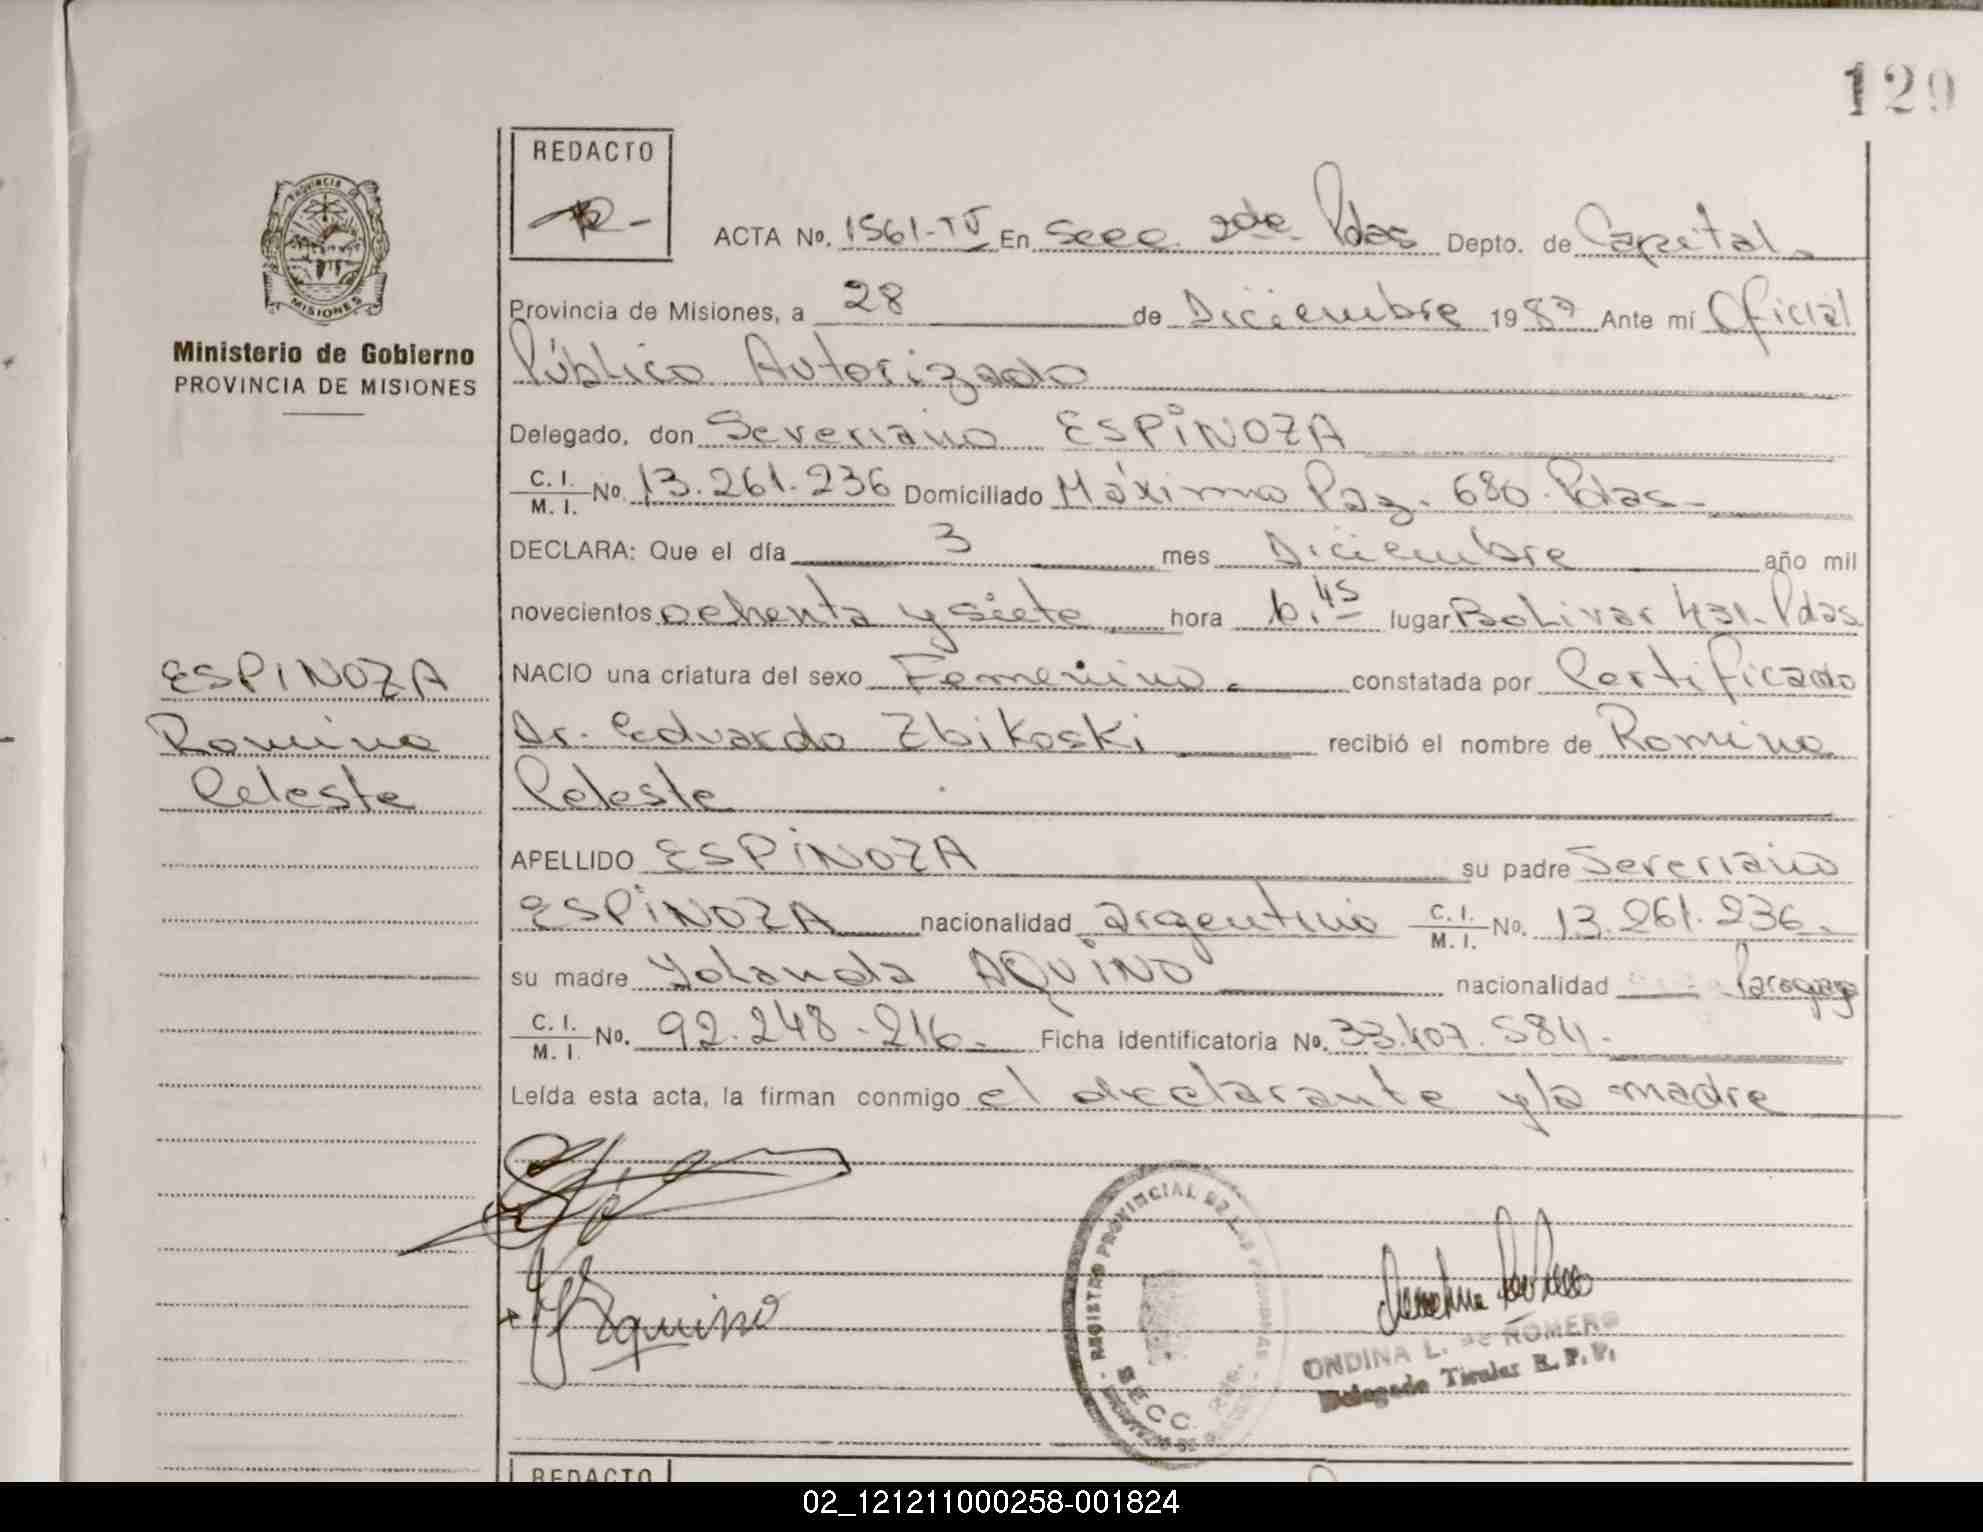 129
REDACTO
PROVINCIA DE
MISIONES
Ministerio de Gobierno
PROVINCIA DE MISIONES
ACTA Nº. 1561-TJ En Secc. 2da Pdas Depto. de Capital
Provincia de Misiones, a 28 de Diciembre 1987 Ante mí Oficial
Público Autorizado
Delegado, don Severiano ESPINOZA
C. I. / M. I. Nº. 13.261.236 Domiciliado Máximo Paz. 680. Pdas-
DECLARA: Que el día 3 mes Diciembre año mil
novecientos ochenta y siete hora 6.45 lugar Bolivar 431. Pdas
NACIO una criatura del sexo Femenino constatada por Certificado
Dr. Eduardo Zbikoski recibió el nombre de Romina
Celeste
ESPINOZA
Romina
Celeste
APELLIDO ESPINOZA su padre Severiano
ESPINOZA nacionalidad argentino C. I. / M. I. Nº. 13.261.236.
su madre Yolanda AQUINO nacionalidad Paraguay
C. I. / M. I. Nº. 92.248.216. Ficha Identificatoria Nº. 33.407.584.
Leída esta acta, la firman conmigo el declarante y la madre
Y Aquino
REGISTRO PROVINCIAL DE LAS PERSONAS
SECC.
ONDINA L. de ROMERO
Delegado Titular R. P. P.
REDACTO
02_121211000258-001824